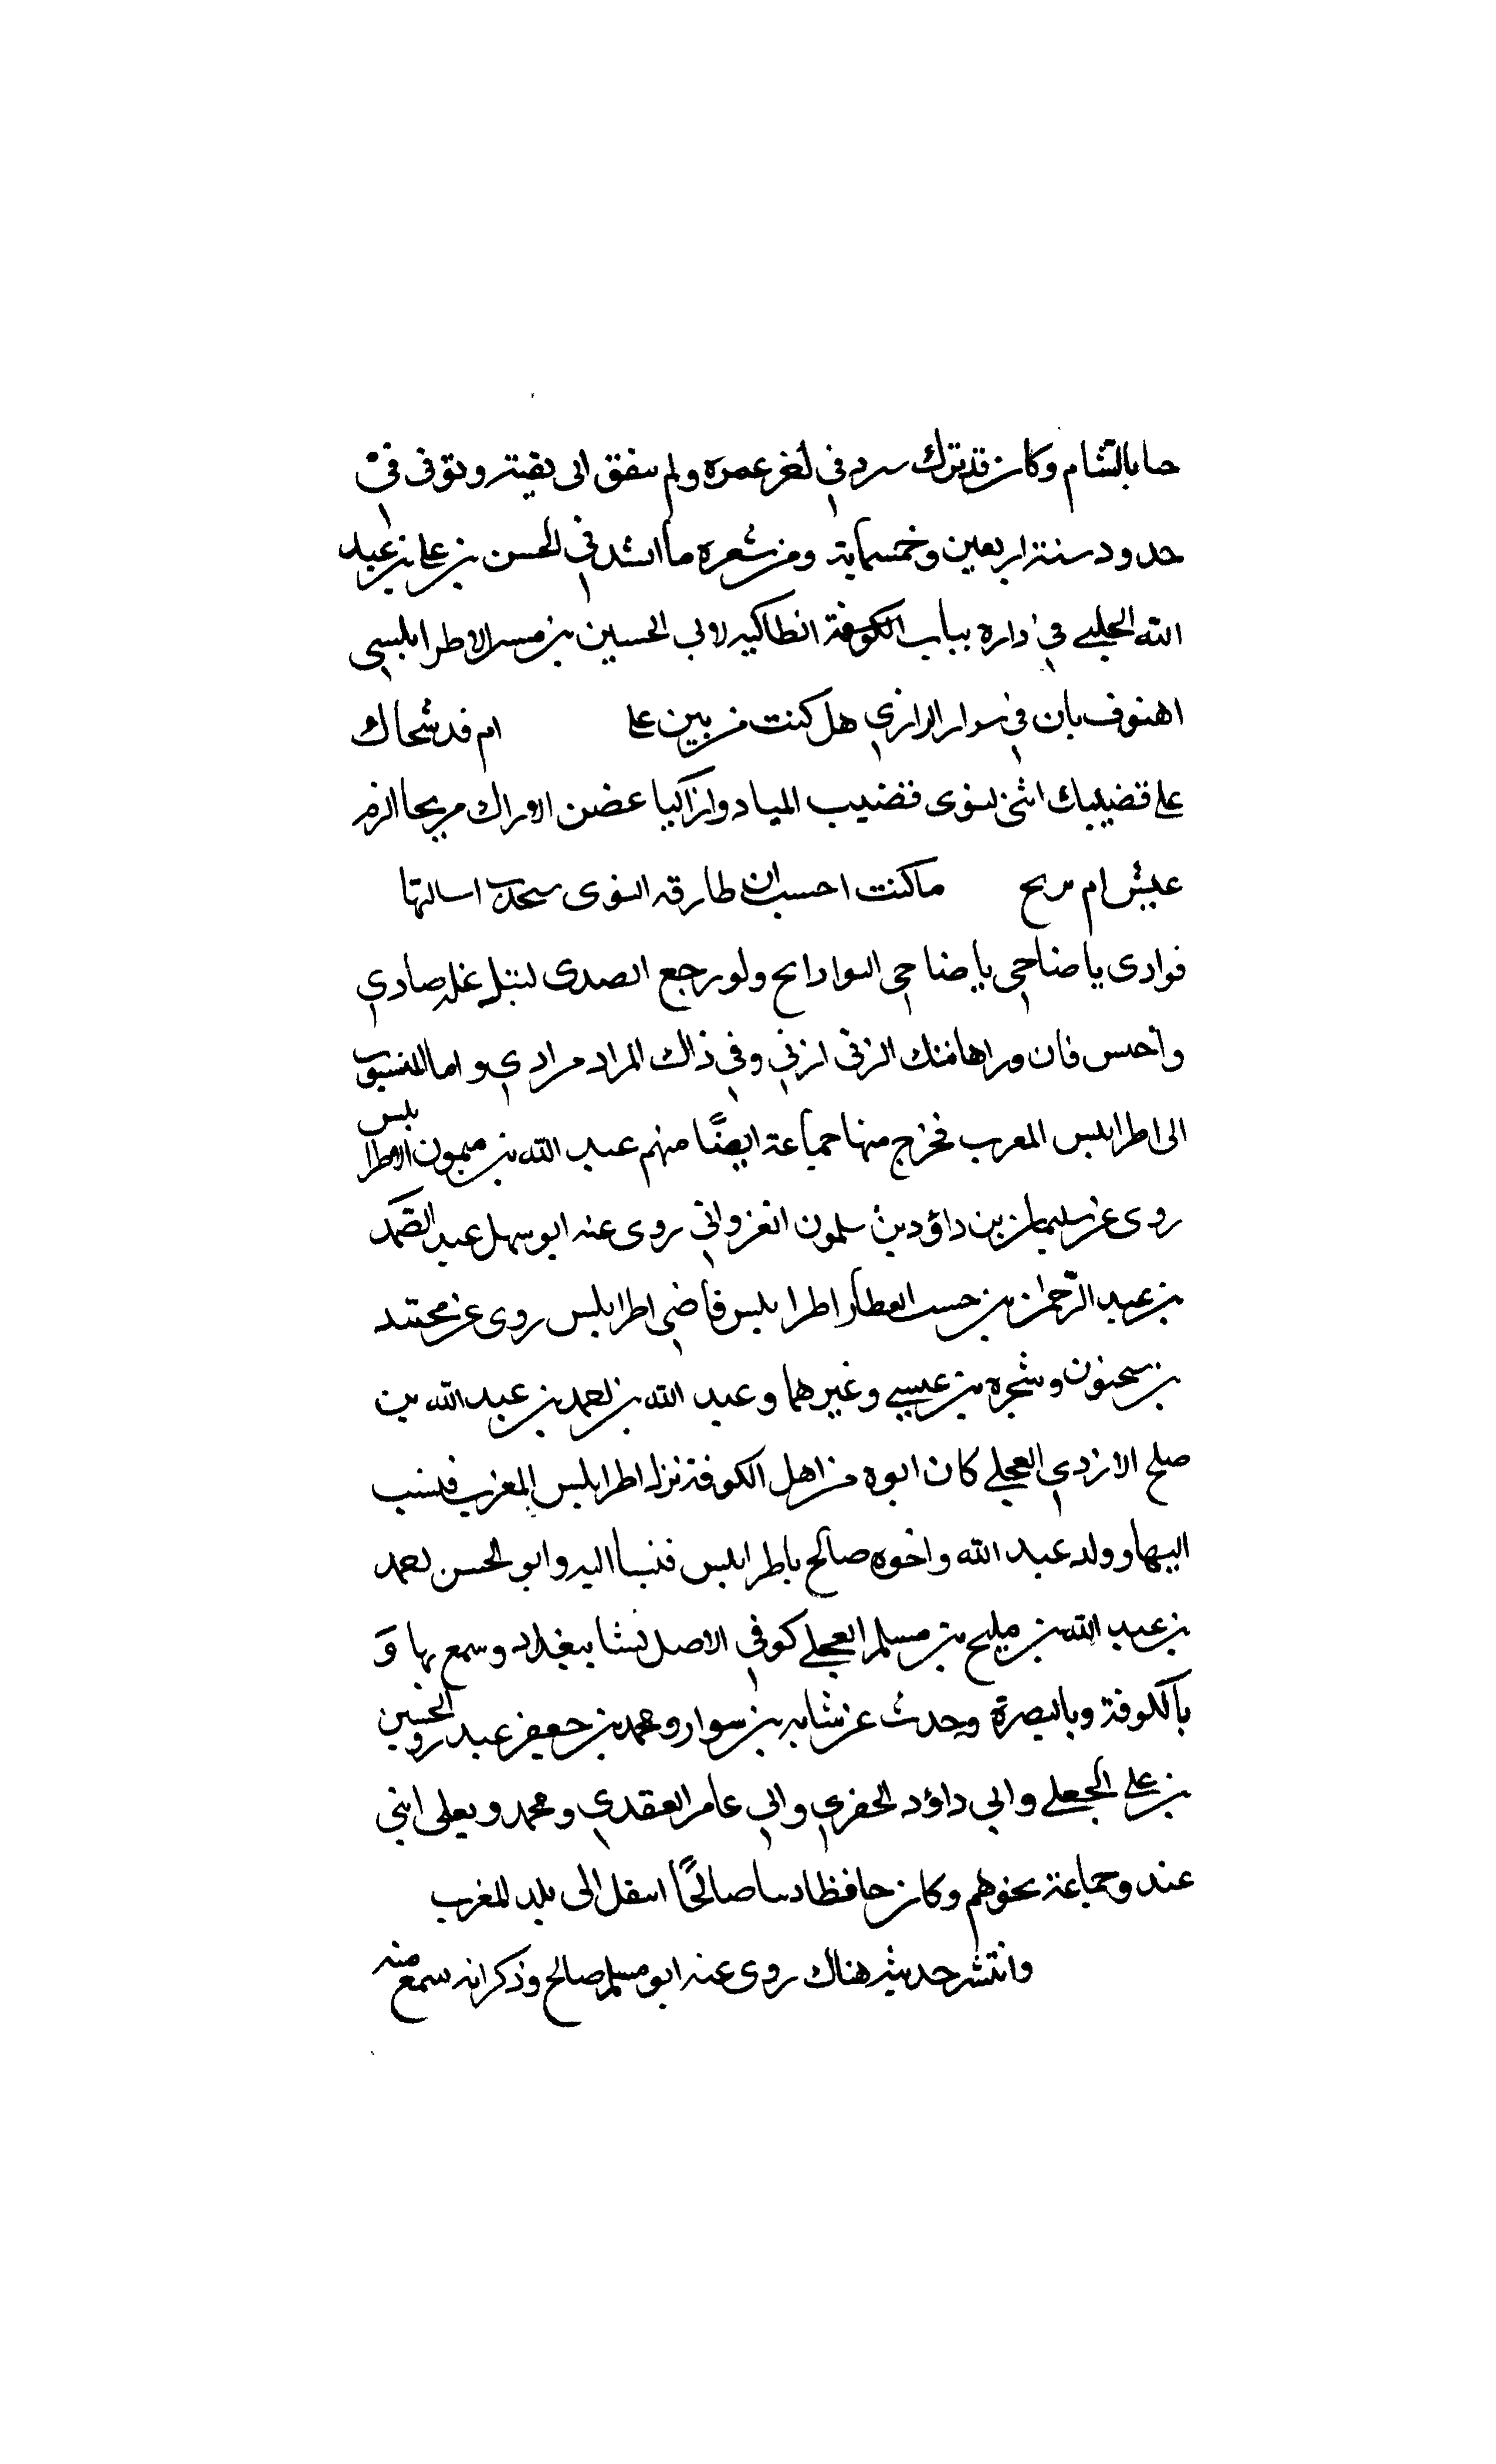 حيا بالشام وكان قد ترك سرد في اخر عمره ولم يتفق الى لقيته وتوفى في
حدود سنة اربعين وخمسماية ومن شعره ما انشدني الحسن بن علي بن عبد
الله الحلبي في داره بباب الكوفة انطاكيه لابي الحسين بن منير الاطرابلسي
اهنوف بان في سوار الرازي هل كنت من بين على ام قد شحاك
على قضيبك انثنى لنوى قضيب المياد وازاكيا عضن الاوراك مريحا الزم
عيش ام مريح ماكنت احسب ان طارقه النوى سحدب اسالتها
فوادى يا صناحي يا صناحي البوادايح ولو رجع الصدى لتبل غله صادي
واحبس فان وراها منك الزنى ازني وفي ذاك المراد مرادي واما المنسوب
الى اطرابلس المغرب فخرج منها جماعة ايضًا منهم عبد الله بن ميمون الاطرابلس
روى عن سليمان بن داؤد بن سلمون الغزواني روى عنه ابو سهل عبد الصمد
بن عبد الرحمن بن حسب العطار اطرابلس قاضي اطرابلس روى عن محمد
بن سحنون وشجره بن عيسى وغيرهما وعبد الله بن احمد بن عبد الله بن
صلح الازدي العجلي كان ابوه من اهل الكوفة نزل اطرابلس المغرب فنسب
اليها وولد عبد الله واخوه صالح باطرابلس فنسبا اليه وابو الحسن احمد
بن عبد الله بن مليح بن مسلم العجلي كوفي الاصل نشا ببغداد وسمع بها وَ
بالكوفة وبالبصرة وحدث عن شبابه بن سوار ومحمد بن جعفر عبدر والحسين
بن علي الجعلي وابي داؤد الحفري وابي عامر العقدي ومحمد ويعلى ابني
عند وجماعة نحوهم وكان حافظا دينا صالحًا انتقل الى بلد المغرب
وانتشر حديثه هناك روى عنه ابو مسلم صالح وذكر انه سمع منه